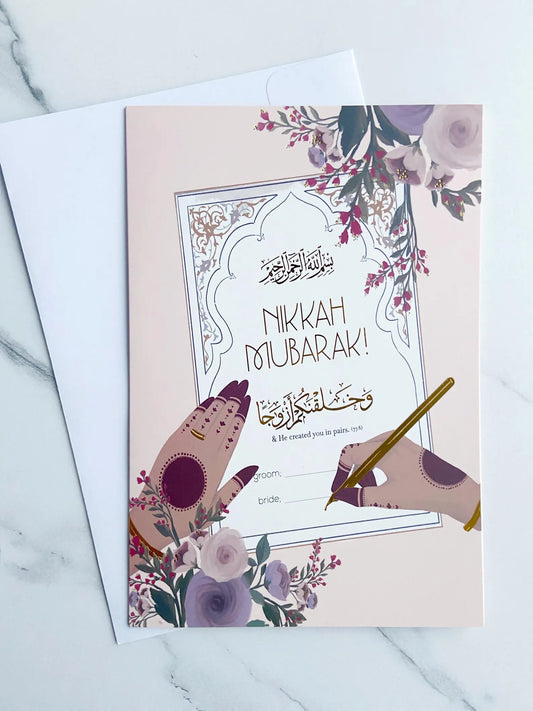 بسم الله الرحمن الرحيم
NIKKAH
MUBARAK!
وَخَلَقْنَٰكُمْ أَزْوَٰجًا
& He created you in pairs. (77:8)
groom;
bride;